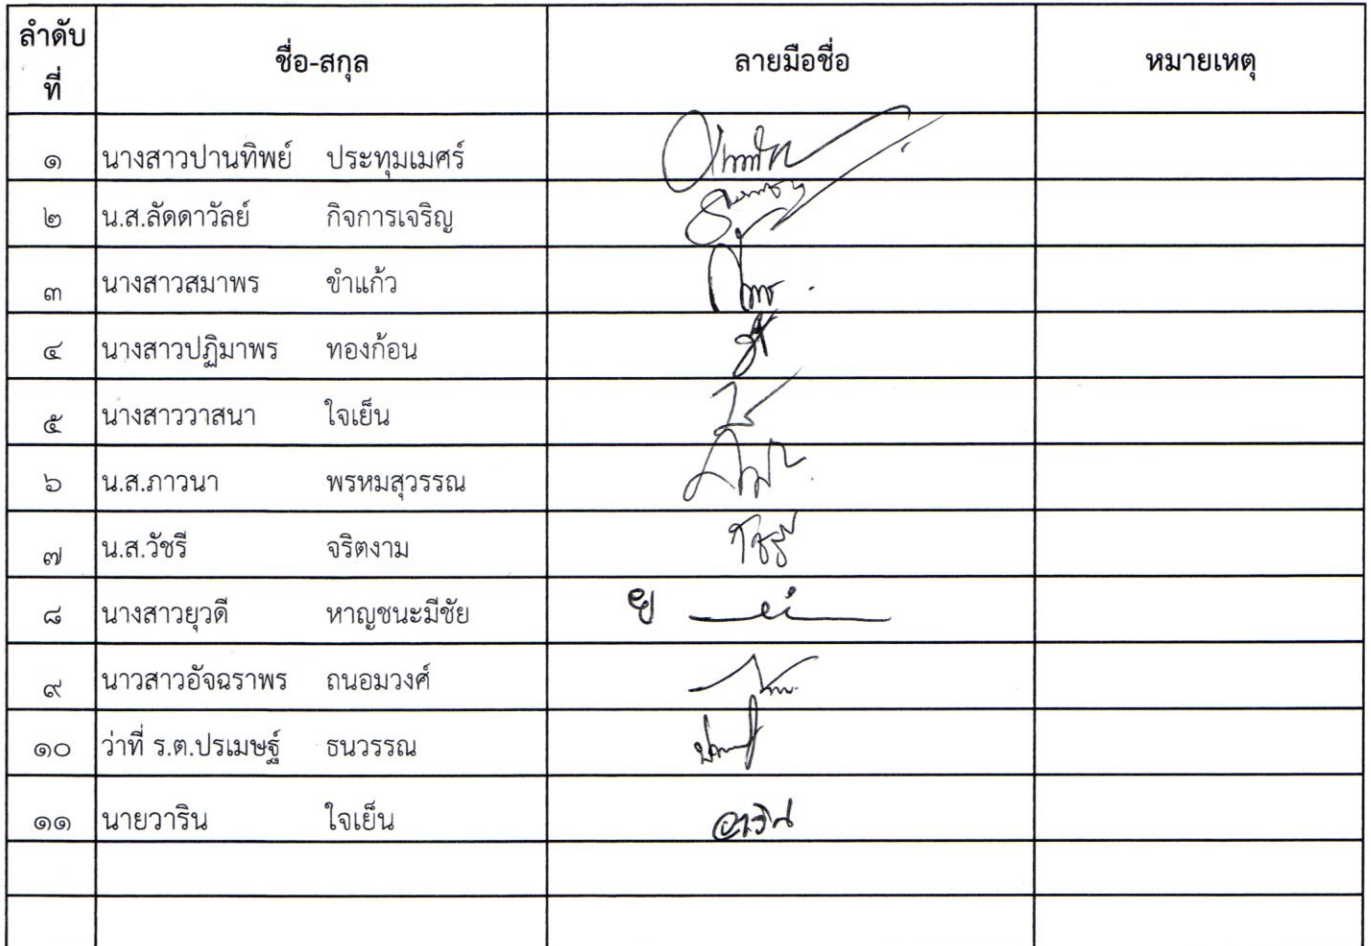 ลำดับที่ ชื่อ-สกุล ลายมือชื่อ หมายเหตุ
๑ นางสาวปานทิพย์ ประทุมเมศร์
๒ น.ส.ลัดดาวัลย์ กิจการเจริญ
๓ นางสาวสมาพร ขำแก้ว
๔ นางสาวปฏิมาพร ทองก้อน
๕ นางสาววาสนา ใจเย็น
๖ น.ส.ภาวนา พรหมสุวรรณ
๗ น.ส.วัชรี จริตงาม วัชรี
๘ นางสาวยุวดี หาญชนะมีชัย
๙ นาวสาวอัจฉราพร ถนอมวงศ์
๑๐ ว่าที่ ร.ต.ปรเมษฐ์ ธนวรรณ
๑๑ นายวาริน ใจเย็น วาริน